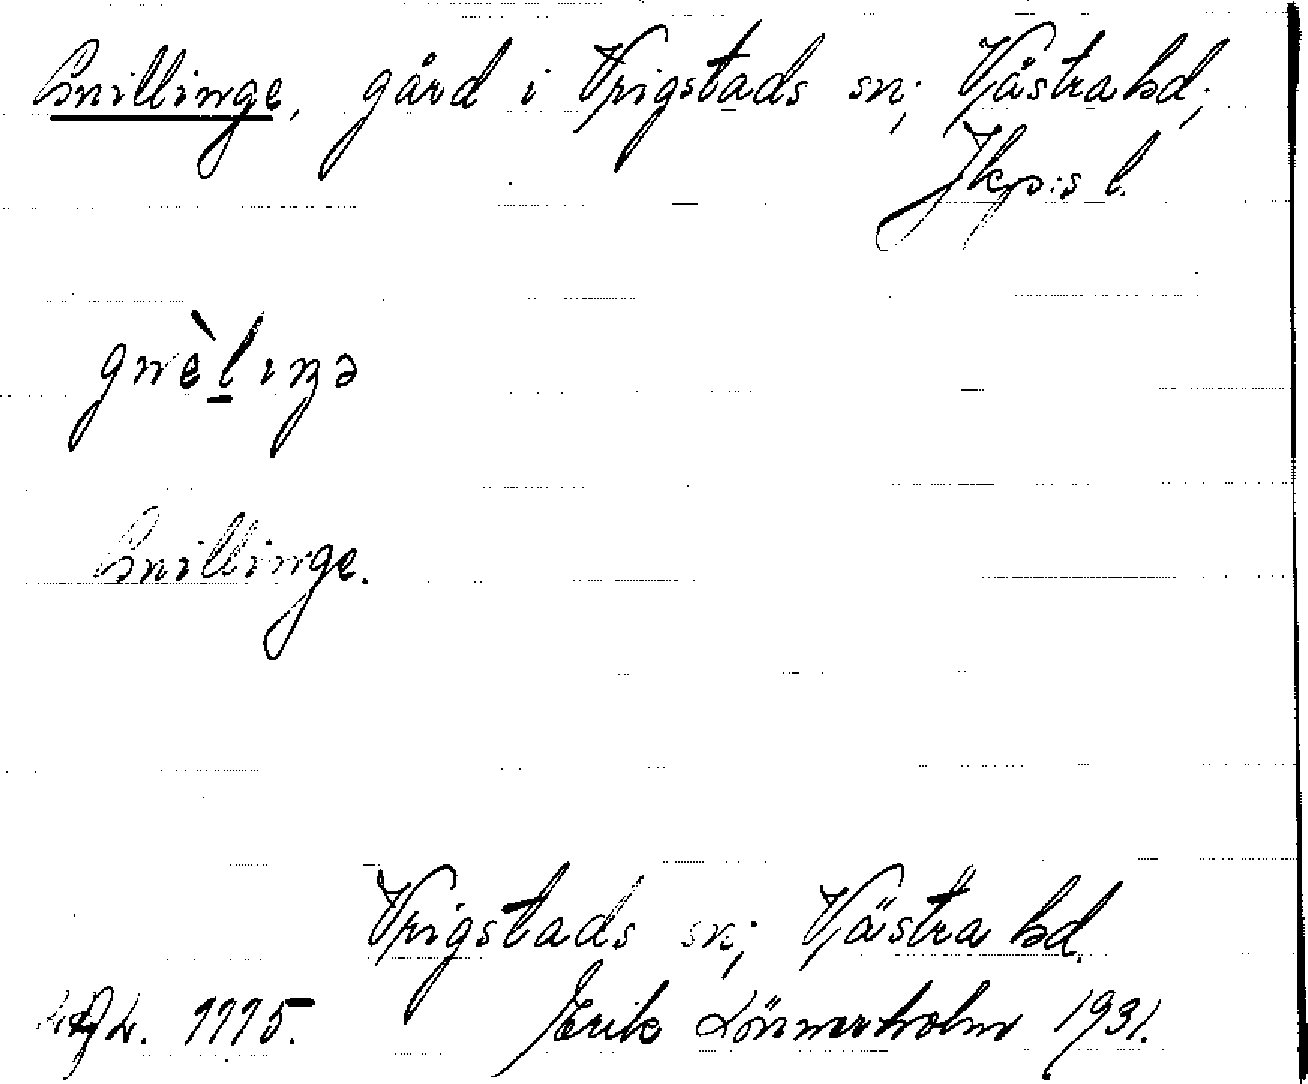 Gnillinge, gård i Vrigstads sn; Västra hd;
Jkp:s l.
gnèl̲ıŋə
Gnillinge.
Vrigstads sn; Västra hd.
1115. Erik Lönnerholm 1931.